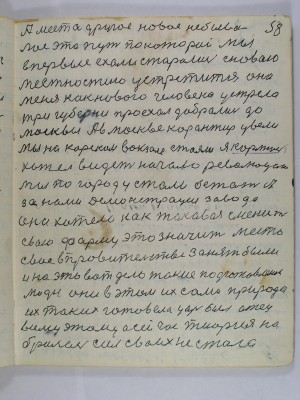 58
А места другое новое небыва
лое это пут по которай мы
впервые ехали старалис сноваю
местностию устретится она
меня как нового человека устрела
три губерни проехал добралис до
москвы Ав москве карантир увели
мы на курском вокзале стали Я
хотел видет начало революцыи
мы по городу стали бегат а
за нами демонстрацыи завода
она хотела как таковая сменит
сваю фарму это значит место
свое в правителстве занят были
и на эта вот дело такие подготовленые
люди они в этом их сама природа
их таких готовела цар был отец
виду этому а сейчас теория на
бралас сил своих не стала